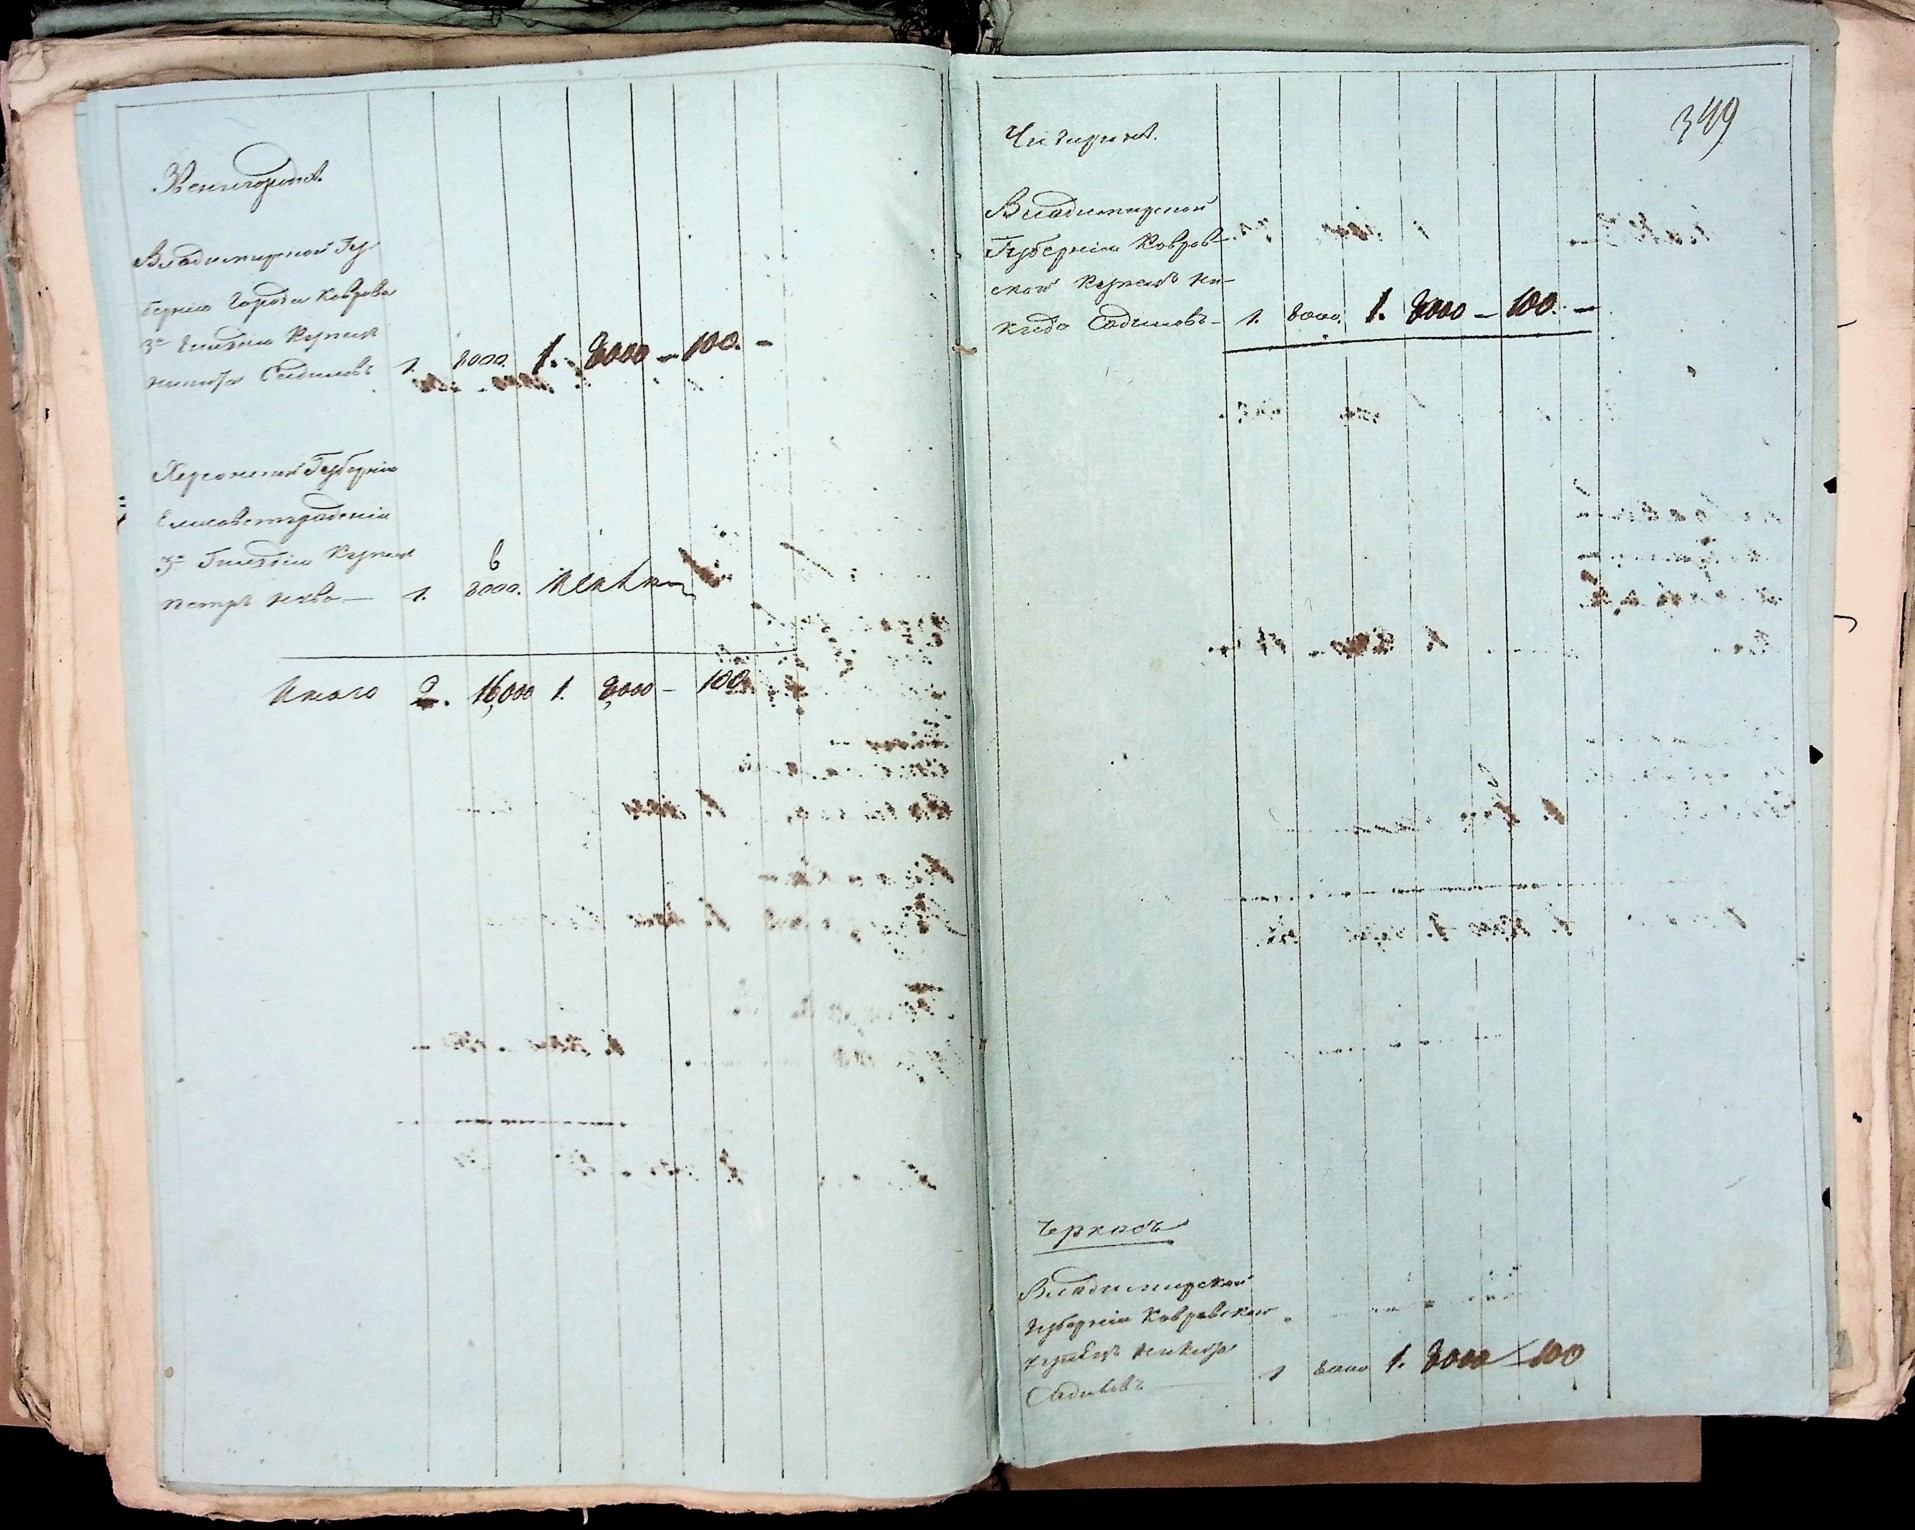 Звенигородка.
Владимирской Гу-
берніи Города Коврова
3й Гильдіи Купецъ
Никита Садиловъ 1. 8000. 1. 8000 – 100. –
Херсонской Губерніи
Елисаветградскій
3й Гильдіи Купецъ
6
Петръ – 1. 8000.
Итого 2. 16,000 1. 8,000 – 100.
349
Чигиринъ.
Владимирской
Губерніи Ковров-
ской Купецъ Ни-
кита Садиловъ – 1. 8000. 1. 8000 – 100. –
Черкасъ
Владимирской
Губерніи Ковровской
купецъ Никита
Садиловъ 1 8000 1. 8000 – 100